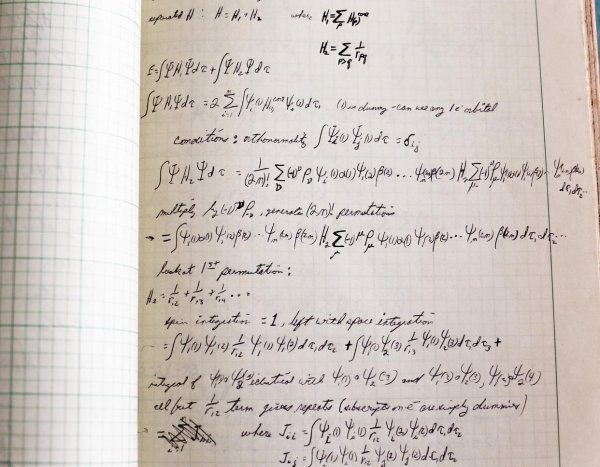 separated H : H = H₁ + H₂ where H₁ = Σ_p H_(p)^core
H₂ = Σ_{p>q} 1/r_pq
E = ∫Ψ H₁ Ψ dτ + ∫Ψ H₂ Ψ dτ
∫Ψ H₁ Ψ dτ = 2 Σ_{i=1}^n ∫ψ_i(1) H_(1)^core ψ_i(1) dτ₁ (1) is dummy - can use any 1 e⁻ orbital
conditions: orthonormality ∫ψ_i(1) ψ_j(1) dτ = δ_ij
∫Ψ H₂ Ψ dτ = 1/(2n)! Σ_ν (-1)^ν P_ν ψ₁(1)α(1) ψ₁(2)β(2) ... ψ_n(2n)β(2n) H₂ Σ_μ (-1)^μ P_μ ψ₁(1)α(1) ψ₁(2)β(2) ... ψ_n(2n)β(2n) dτ₁dτ₂...
multiply (-1)^ν P_ν, generate (2n)! permutations
→ = ∫ψ₁(1)α(1) ψ₁(2)β(2) ... ψ_n(2n)β(2n) H₂ Σ_μ (-1)^μ P_μ ψ₁(1)α(1) ψ₁(2)β(2) ... ψ_n(2n)β(2n) dτ₁dτ₂...
look at 1st permutation:
H₂ = 1/r₁₂ + 1/r₁₃ + 1/r₁₄ ...
spin integration = 1, left with space integration
= ∫ψ₁(1) ψ₁(2) 1/r₁₂ ψ₁(1) ψ₁(2) dτ₁dτ₂ + ∫ψ₁(1) ψ₂(3) 1/r₁₃ ψ₁(1) ψ₂(3) dτ₁dτ₃ +
integral of ψ₁(1) ψ₂(3) identical with ψ₁(1) ψ₂(3) and ψ₁(1) ψ₂(4)
all but 1/r₁₂ term gives repeats (subscripts on e⁻ are simply dummies)
= where J_ii = ∫ψ_i(1) ψ_i(1) 1/r₁₂ ψ_i(2) ψ_i(2) dτ₁dτ₂
J_ij = ∫ψ_i(1) ψ_i(1) 1/r₁₂ ψ_j(2) ψ_j(2) dτ₁dτ₂